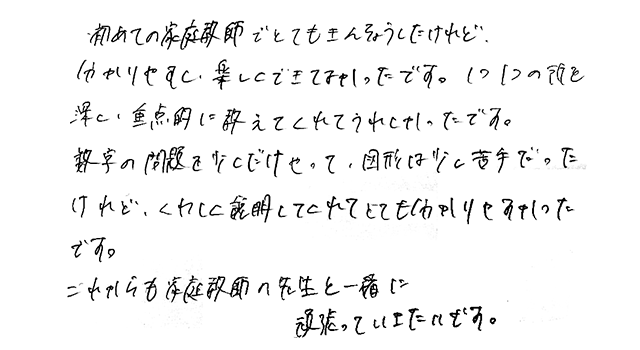 初めての家庭教師でとてもきんちょうしたけれど、
分かりやすく、楽しくできてよかったです。1つ1つの所を
深く、重点的に教えてくれてうれしかったです。
数学の問題を少しだけやって、図形は少し苦手だった
けれど、くわしく説明してくれてとても分かりやすかった
です。
これからも家庭教師の先生と一緒に
頑張っていきたいです。